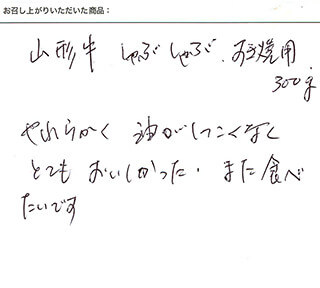 お召し上がりいただいた商品：
山形牛 しゃぶしゃぶ、すき焼用
300g
やわらかく 油がしつこくなく
とても おいしかった。また食べ
たいです